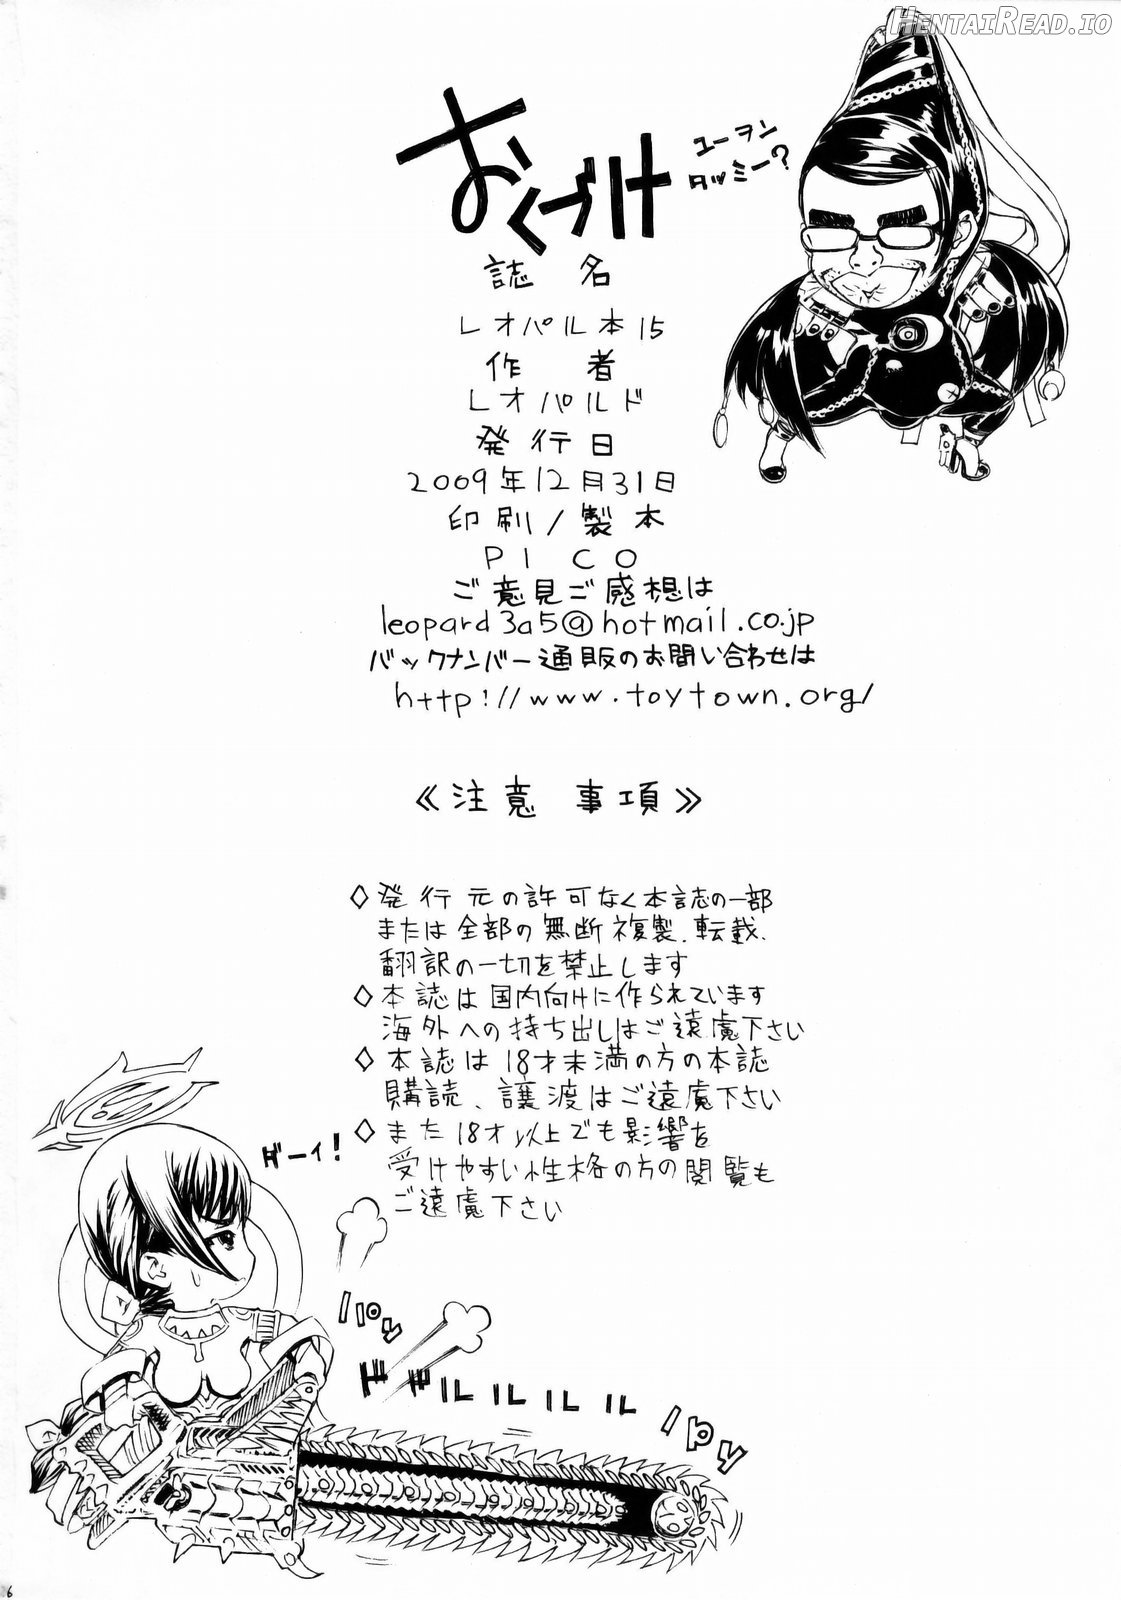 HentaiRead.io
おくづけ
ユーヲン
タッミー?
誌名
レオパル本15
作者
レオパルド
発行日
2009年12月31日
印刷/製本
PICO
ご意見ご感想は
leopard3a5@hotmail.co.jp
バックナンバー通販のお問い合わせは
http://www.toytown.org/
《注意 事項》
◇発行元の許可なく本誌の一部
または全部の無断複製、転載、
翻訳の一切を禁止します
◇本誌は国内向けに作られています
海外への持ち出しはご遠慮下さい
◇本誌は18才未満の方の本誌
購読、譲渡はご遠慮下さい
◇また18才以上でも影響を
受けやすい性格の方の閲覧も
ご遠慮下さい
ダーイ!
パっ
ドドルルルルル
パっ
6